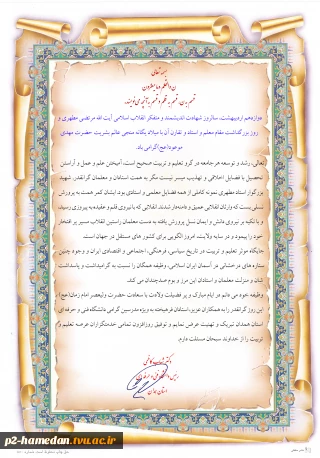 بسمه تعالی
ن والقلم و ما یسطرون
قسم به ن، قسم به قلم و قسم به آنچه می نویسند.
دوازدهم اردیبهشت، سالروز شهادت اندیشمند و متفکر انقلاب اسلامی آیت الله مرتضی مطهری و
روز بزرگداشت مقام معلم و استاد و تقارن آن با میلاد یگانه منجی عالم بشریت حضرت مهدی
موعود(عج) گرامی باد.
تعالی، رشد و توسعه هر جامعه در گرو تعلیم و تربیت صحیح است، آمیختن علم و عمل و آراستن
تحصیل با فضایل اخلاقی و تهذیب میسر نیست مگر به همت استادان و معلمان گرانقدر. شهید
بزرگوار استاد مطهری نمونه کاملی از همه فضایل معلمی و استادی بود. ایشان کمر همت به پرورش
نسلی بست که وارثان انقلابی عمیق و دامنه دار شدند. انقلابی که با نیروی قلم و عقیده به پیروزی رسید،
و با تکیه بر نیروی دانش و ایمان نسل پرورش یافته به دست معلمان راستین انقلاب مسیر پر افتخار
خود را پیمود و در سایه ولایت، امروز الگویی برای کشور های مستقل در جهان است.
جایگاه موثر تعلیم و تربیت در تاریخ سیاسی، فرهنگی، اجتماعی و اقتصادی ایران و وجود چنین
ستاره های درخشانی در آسمان ایران اسلامی، وظیفه همگان را نسبت به گرامیداشت و پاسداشت،
شان و منزلت معلمان و استادان این مرز و بوم صدچندان می کند.
وظیفه خود می دانم در ایام مبارک و پر فضیلت ولادت با سعادت حضرت ولیعصر امام زمان(عج)
این روز گرانقدر را به همکاران عزیز، استادان فرهیخته به ویژه مدرسین گرامی دانشگاه فنی و حرفه ای
استان همدان تبریک و تهنیت عرض نمایم و توفیق روزافزون تمامی خدمتگزاران عرصه تعلیم و
تربیت را از خداوند سبحان مسئلت دارم.
رئیس دانشگاه فنی و حرفه ای
استان همدان
p2-hamedan.tvu.ac.ir